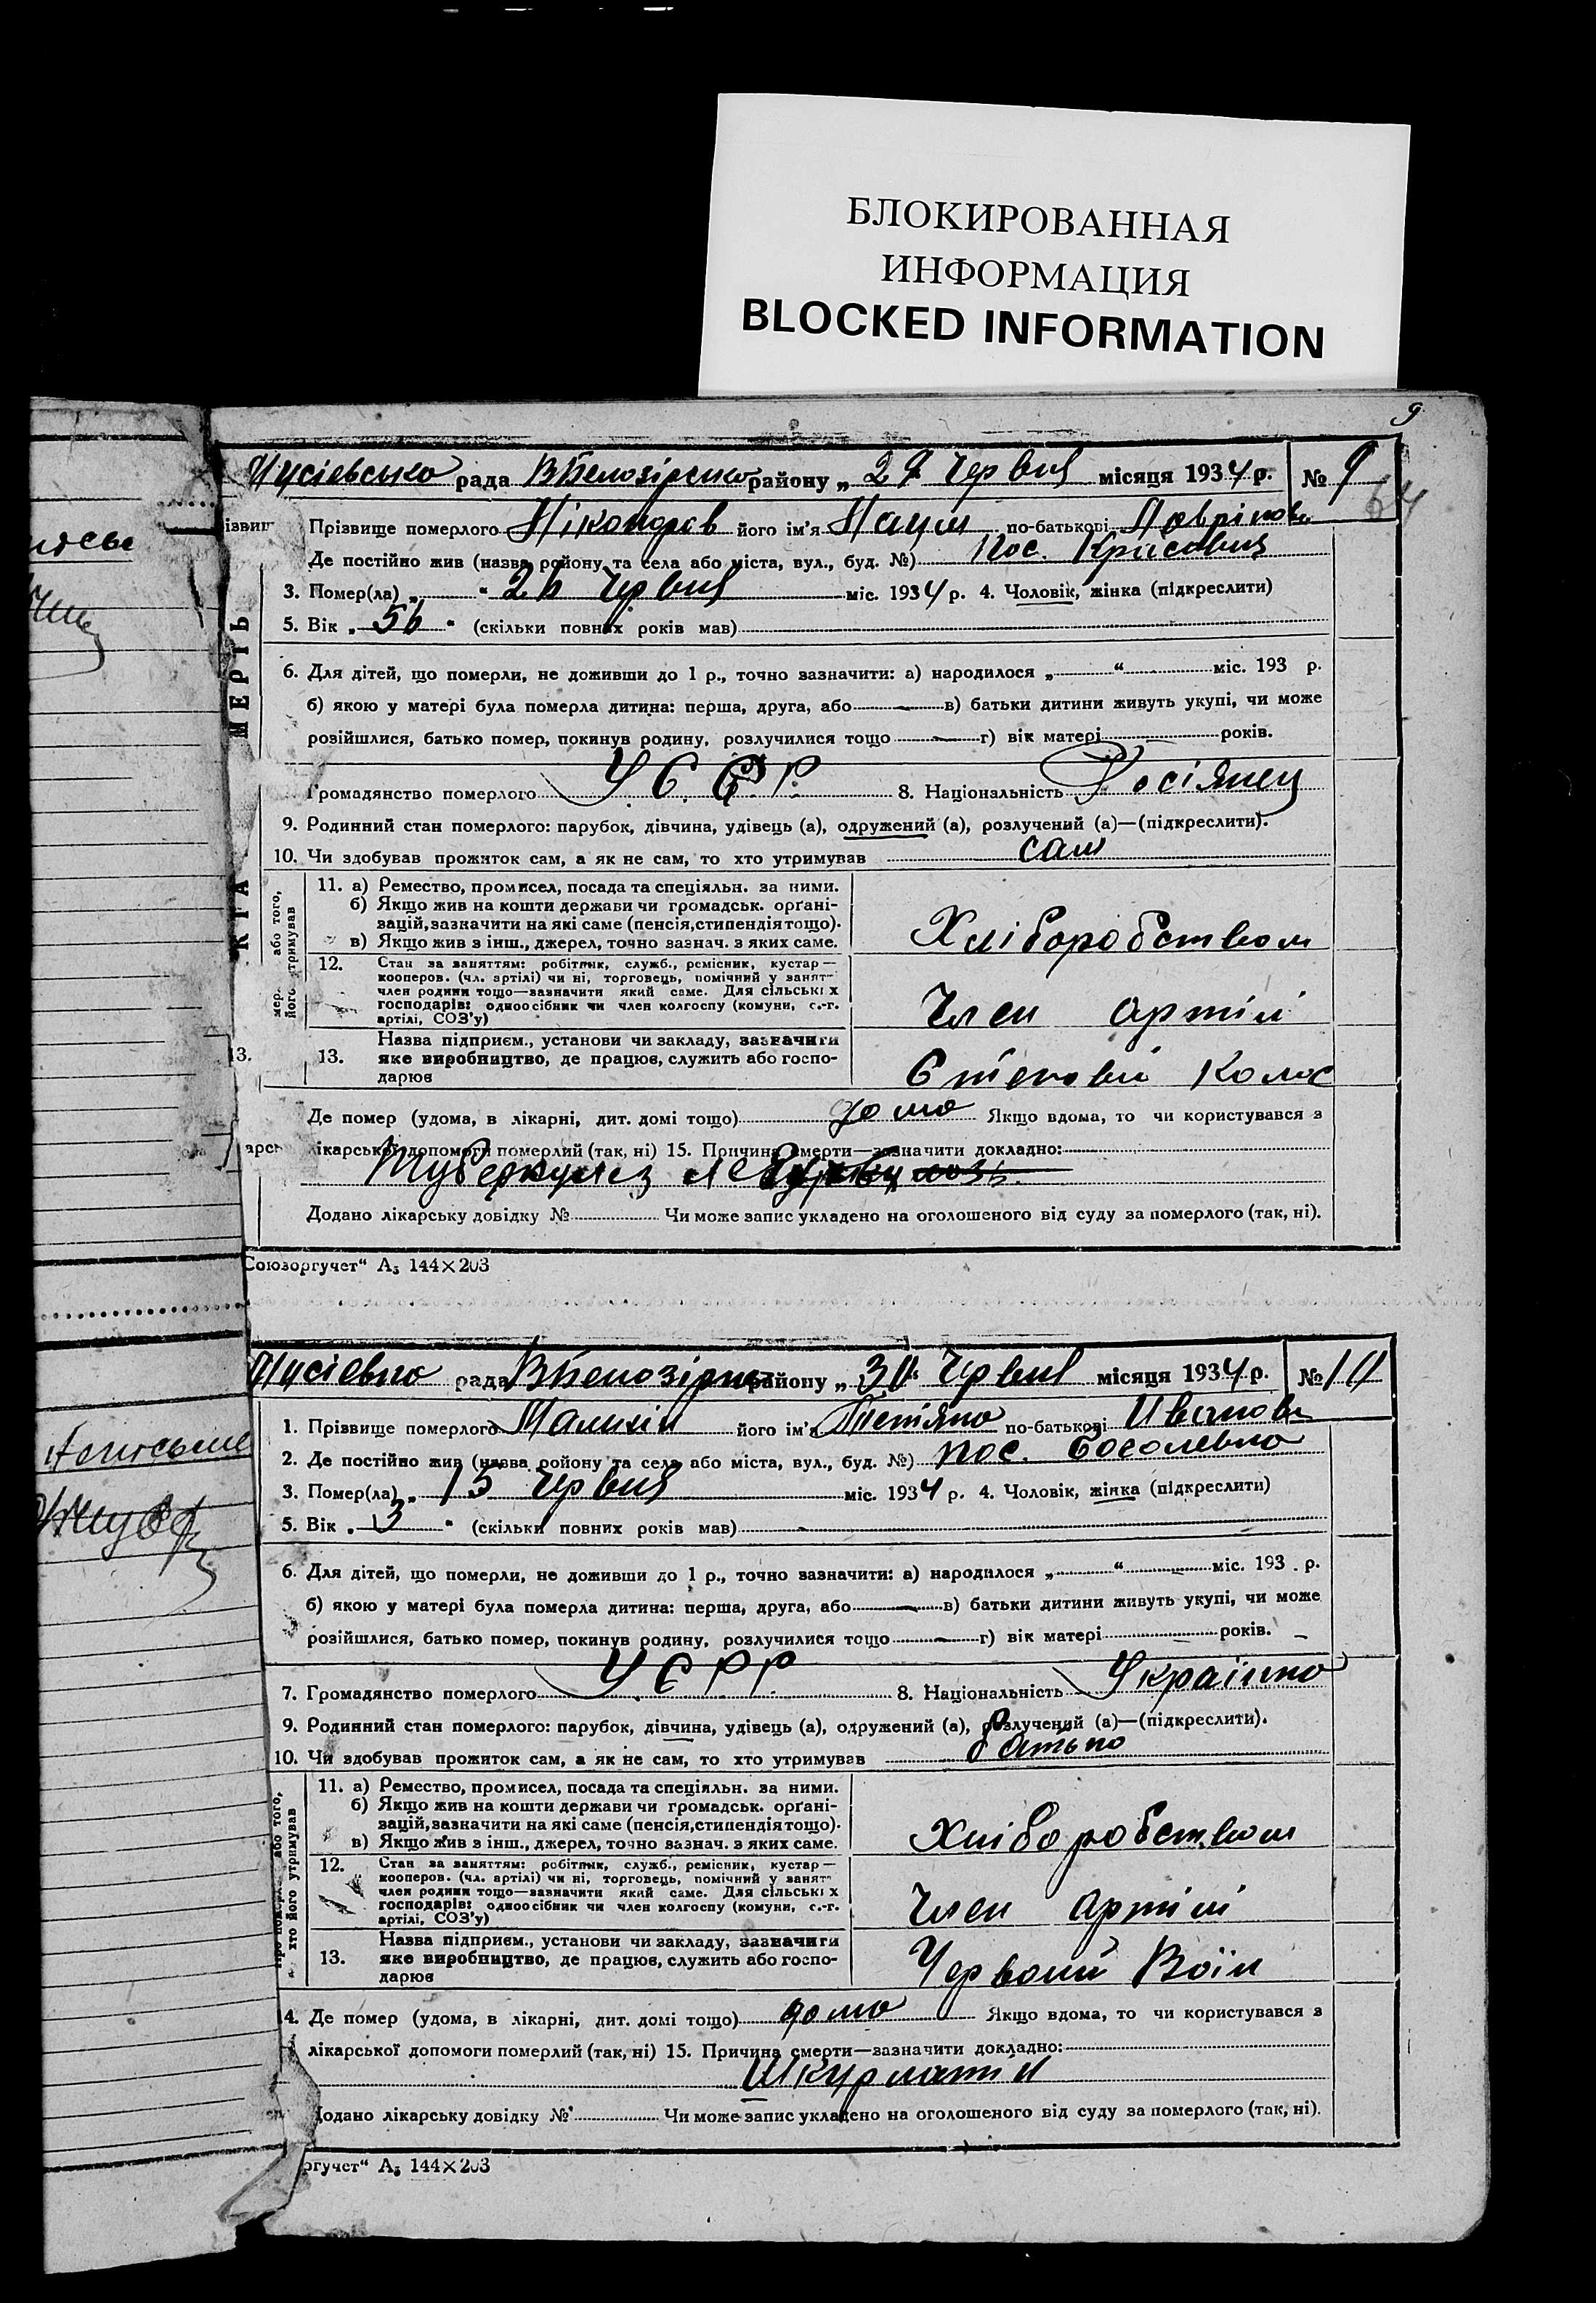 БЛОКИРОВАННАЯ
ИНФОРМАЦИЯ
BLOCKED INFORMATION
9
рада В Белозірсько району „ 27 Червня місяця 1934 р. № 9
64
Прізвище померлого Ніконоров його ім'я Наум по-батькові
Де постійно жив (назва району та села або міста, вул., буд. №) пос.
3. Помер(ла) „ “ 26 Червня міс. 1934 р. 4. Чоловік, жінка (підкреслити)
5. Вік „ 56 “ (скільки повних років мав)
6. Для дітей, що померли, не доживши до 1 р., точно зазначити: а) народилося „ “ міс. 193 р.
б) якою у матері була померла дитина: перша, друга, або — в) батьки дитини живуть укупі, чи може
розійшлися, батько помер, покинув родину, розлучилися тощо — г) вік матері років.
Громадянство померлого У. С. Р. 8. Національність Росіянец
9. Родинний стан померлого: парубок, дівчина, удівець (а), одружений (а), розлучений (а)—(підкреслити).
10. Чи здобував прожиток сам, а як не сам, то хто утримував сам
11. а) Ремество, промисел, посада та спеціяльн. за ними.
б) Якщо жив на кошти держави чи громадськ. орґані-
зацій, зазначити на які саме (пенсія, стипендія тощо).
в) Якщо жив з інш., джерел, точно зазнач. з яких саме.
Хліборобством
12. Стан за заняттям: робітник, служб., ремісник, кустар—
кооперов. (чл. артілі) чи ні, торговець, помічний у занят—
член родини тощо—зазначити який саме. Для сільських
господарів: одноосібник чи член колгоспу (комуни, с.-г.
артілі, СОЗ'у)
Член артілі
13. Назва підприєм., установи чи закладу, зазначити
яке виробництво, де працює, служить або госпо-
дарює
Степовий Колос
Де помер (удома, в лікарні, дит. домі тощо) дома Якщо вдома, то чи користувався з
лікарської допомоги померлий (так, ні) 15. Причина смерти—зазначити докладно:
Туберкульоз
Додано лікарську довідку № Чи може запис укладено на оголошеного від суду за померлого (так, ні).
Союзоргучет“ А₅ 144×203
рада В Белозірсько району „ 30 Червня місяця 1934 р. № 10
1. Прізвище померлого його ім'я Тетяна по-батькові Иванова
2. Де постійно жив (назва району та села або міста, вул., буд. №) пос.
3. Помер(ла) „ 15 Червня міс. 1934 р. 4. Чоловік, жінка (підкреслити)
5. Вік „ 3 “ (скільки повних років мав)
6. Для дітей, що померли, не доживши до 1 р., точно зазначити: а) народилося „ “ міс. 193 . р.
б) якою у матері була померла дитина: перша, друга, або — в) батьки дитини живуть укупі, чи може
розійшлися, батько помер, покинув родину, розлучилися тощо — г) вік матері — років. —
7. Громадянство померлого УСРР 8. Національність Українка
9. Родинний стан померлого: парубок, дівчина, удівець (а), одружений (а), розлучений (а)—(підкреслити).
10. Чи здобував прожиток сам, а як не сам, то хто утримував батько
11. а) Ремество, промисел, посада та спеціяльн. за ними.
б) Якщо жив на кошти держави чи громадськ. орґані-
зацій, зазначити на які саме (пенсія, стипендія тощо).
в) Якщо жив з інш., джерел, точно зазнач. з яких саме.
Хліборобством
12. Стан за заняттям: робітник, служб., ремісник, кустар—
кооперов. (чл. артілі) чи ні, торговець, помічний у занят—
член родини тощо—зазначити який саме. Для сільських
господарів: одноосібник чи член колгоспу (комуни, с.-г.
артілі, СОЗ'у)
Член артілі
13. Назва підприєм., установи чи закладу, зазначити
яке виробництво, де працює, служить або госпо-
дарює
Червоний Воїн
14. Де помер (удома, в лікарні, дит. домі тощо) дома Якщо вдома, то чи користувався з
лікарської допомоги померлий (так, ні) 15. Причина смерти—зазначити докладно:
Шкурлатіна
Додано лікарську довідку № Чи може запис укладено на оголошеного від суду за померлого (так, ні).
ргучет“ А₅ 144×203